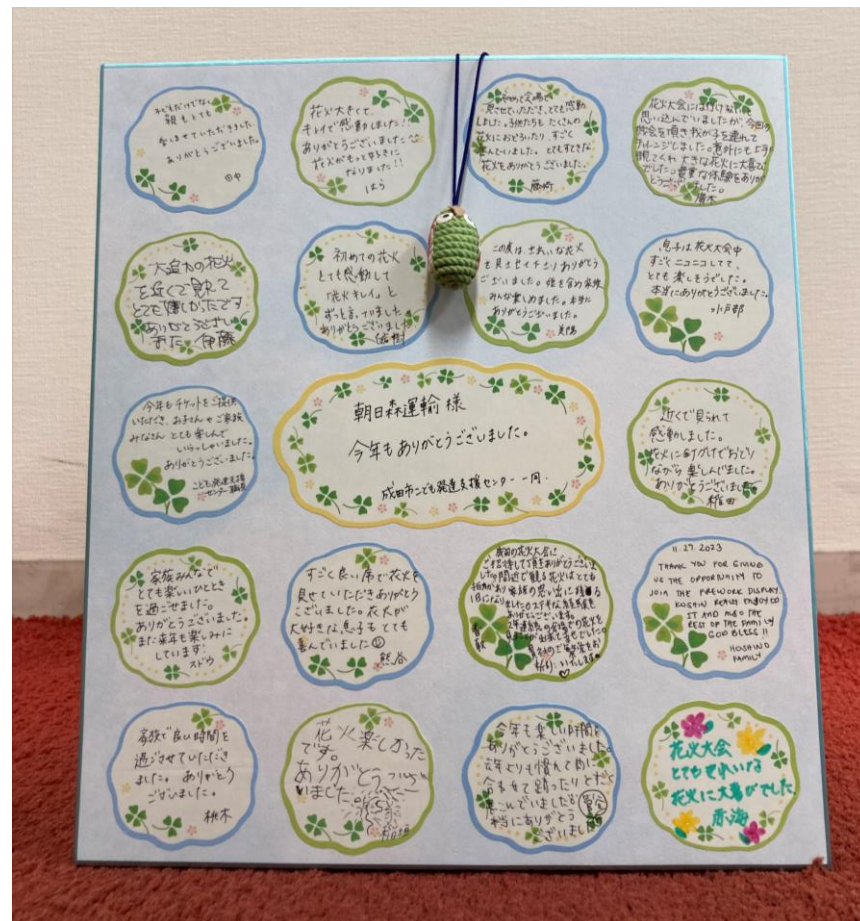 子どもだけでなく
親もとても
楽しませていただきました。
ありがとうございました。
田中
花火大きくて、
キレイで感動しました!
ありがとうございました
花火がもっと好きに
なりました!!
はら
初めて会場で
見させていただき、とても感動
しました。子供たちも たくさんの
花火におどろいたり、すごく
喜んでいました。とてもすてきな
花火をありがとうございました。
藤崎
花火大会には行けないと
思い込んでいましたが、今回の
機会を頂き我が子を連れて
チャレンジしました。意外にも上手に
観てくれ大きな花火に大喜び
でした。貴重な体験をありが
とうございました。
大迫力の花火
を近くで観れて
とても嬉しかったです
ありがとうござい
ました 伊藤
初めての花火
とても感動して
「花火キレイ」と
ずっと言っていました
ありがとうございました
この度は、きれいな花火
を見させていただきありがとう
ございました。娘を含め家族
みんな楽しめました。本当に
ありがとうございました。
息子は花火大会中
すごくニコニコしてて、
とても楽しそうでした。
本当にありがとうございました。
水戸部
今年もチケットをご提供
いただき、お子さんやご家族
みなさん とても楽しんで
いらっしゃいました。
ありがとうございました。
こども発達支援
センター職員
朝日森運輸様
今年もありがとうございました。
成田市こども発達支援センター一同.
近くで見られて
感動しました。
花火に向けておどり
ながら 楽しんでました。
ありがとうございました
椎田
家族みんなで
とても楽しいひととき
を過ごせました。
ありがとうございました。
また来年も楽しみに
しています!
スドウ
すごく良い席で花火を
見せていただきありがとう
ございました。花火が
大好きな息子もとても
喜んでいました
熊谷
成田の花火大会に
ご招待して頂きありがとうございま
した。間近で観る花火はとても
家族の思い出に残る
1日になりました。
ありがとうございます。
♡
11.27.2023
THANK YOU FOR GIVING
US THE OPPORTUNITY TO
JOIN THE FIREWORK DISPLAY.
KOSHIN REALLY ENJOYED
IT AND ALSO THE
RES OF THE FAMILY
GOD BLESS !!
HOSHINO
FAMILY
家族で良い時間を
過ごさせていただき
ました。ありがとう
ございました。
桃木
花火楽しかった
です。
ありがとうござ
いました。
今年も楽しい時間を
ありがとうございました。
去年よりも慣れて曲に
合わせて踊ったりとても
喜こんでいました
本当にありがとう
ございました
花火大会
とてもきれいな
花火に大喜びでした
赤海